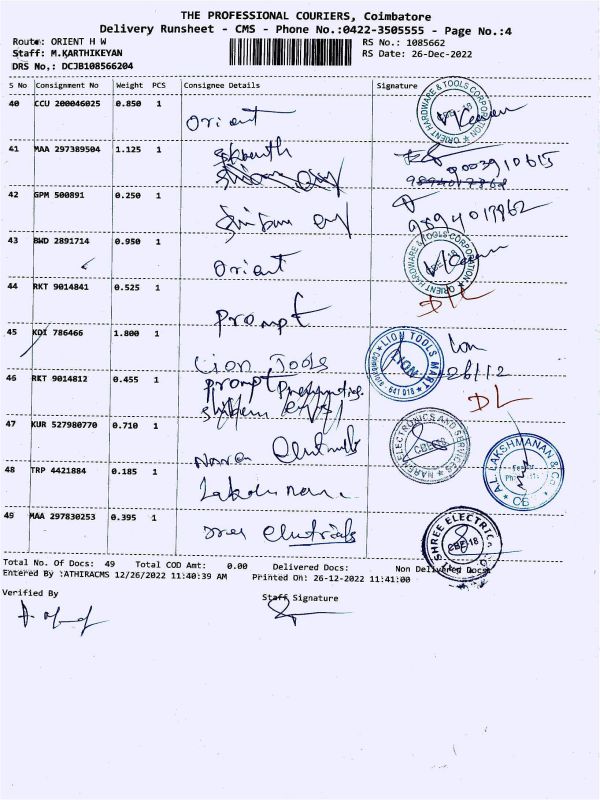 THE PROFESSIONAL COURIERS, Coimbatore
Delivery Runsheet - CMS - Phone No.:0422-3505555 - Page No.:4
Route: ORIENT H W
RS No.: 1085662
Staff: M.KARTHIKEYAN
RS Date: 26-Dec-2022
DRS No.: DCJB108566204
S No Consignment No Weight PCS Consignee Details Signature
40 CCU 200046025 0.850 1
Orient
ORIENT HARDWARE & TOOLS CORPORATION CBE-18
41 MAA 297389504 1.125 1
9003910615
42 GPM 500891 0.250 1
9894017862
43 BWD 2891714 0.950 1
Orient
ORIENT HARDWARE & TOOLS CORPORATION CBE-18
44 RKT 9014841 0.525 1
Prompt
DL
45 KDI 786466 1.800 1
Lion Tools
LION TOOLS MART LION 641 018
Lion
26/12
46 RKT 9014812 0.455 1
prompt
DL
47 KUR 527980770 0.710 1
ELECTRONICS AND SERVICES
48 TRP 4421884 0.185 1
A.L. LAKSHMANAN & Co
49 MAA 297830253 0.395 1
SHREE ELECTRIC CBE-18
Total No. Of Docs: 49 Total COD Amt: 0.00 Delivered Docs: Non Delivered Docs:
Entered By :ATHIRACMS 12/26/2022 11:40:39 AM Printed On: 26-12-2022 11:41:00
Verified By
Staff Signature